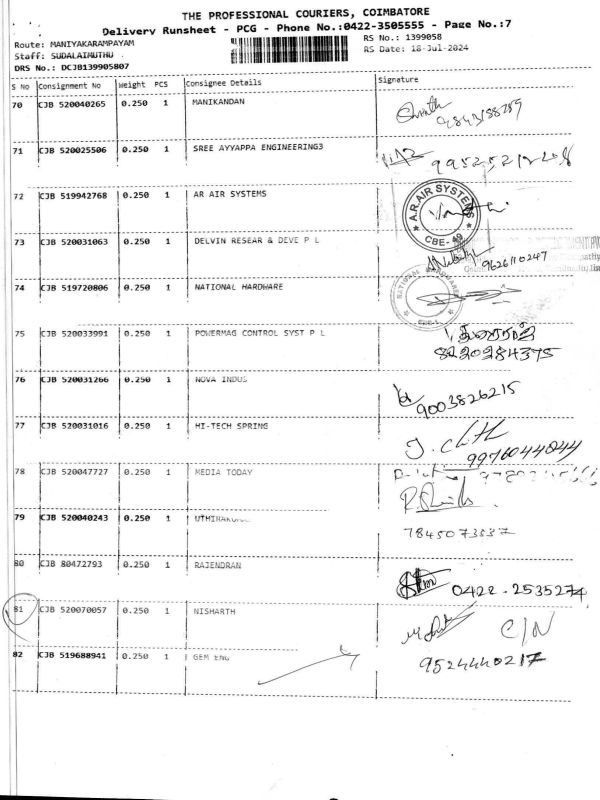 THE PROFESSIONAL COURIERS, COIMBATORE
Delivery Runsheet - PCG - Phone No.:0422-3505555 - Page No.:7
Route: MANIYAKARAMPAYAM
RS No.: 1399058
Staff: SUDALAIMUTHU
RS Date: 18-Jul-2024
DRS No.: DCJB139905807
S No Consignment No Weight PCS Consignee Details Signature
70 CJB 520040265 0.250 1 MANIKANDAN
71 CJB 520025506 0.250 1 SREE AYYAPPA ENGINEERING3
72 CJB 519942768 0.250 1 AR AIR SYSTEMS
A.R.AIR SYSTEMS
CBE-49
73 CJB 520031063 0.250 1 DELVIN RESEAR & DEVE P L
9626110247
74 CJB 519720806 0.250 1 NATIONAL HARDWARE
NATIONAL HARDWARE
75 CJB 520033991 0.250 1 POWERMAG CONTROL SYST P L
8220284375
76 CJB 520031266 0.250 1 NOVA INDUS
9003826215
77 CJB 520031016 0.250 1 HI-TECH SPRING
9976044044
78 CJB 520047727 0.250 1 MEDIA TODAY
79 CJB 520040243 0.250 1
7845073537
80 CJB 80472793 0.250 1 RAJENDRAN
0422-2535274
81 CJB 520070057 0.250 1 NISHARTH
C/N
82 CJB 519688941 0.250 1 GEM ENG
9524440217